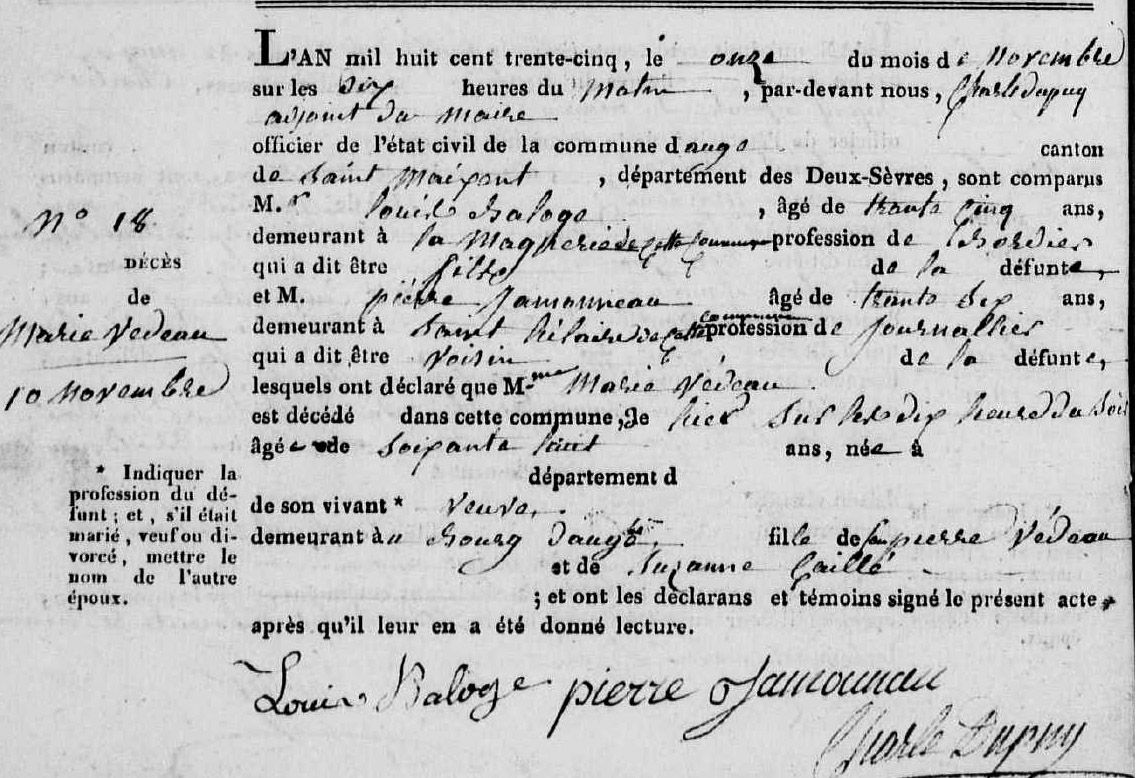 L'AN mil huit cent trente-cinq, le onze du mois de Novembre
sur les dix heures du Matin, par-devant nous, Charle dupuy
adjoint du Maire
officier de l'état civil de la commune d'auge canton
de Saint Maixant, département des Deux-Sèvres, sont comparus
M.r Louis Baloge, âgé de trante cinq ans,
demeurant à la Magnerie de Cette Commune profession de Bordier
qui a dit être filse de la défunte,
et M. pierre Jamonneau âgé de trante six ans,
demeurant à Saint hilaire de Cette commune profession de Journallier
qui a dit être Voisin de la défunte,
lesquels ont déclaré que M.me Marie Vedeau
est décédé dans cette commune, le hier Sur les dix heure du Soir
âgée de Soixante huit ans, née à
département d
de son vivant * veuve,
demeurant au Bourg d'augé, fille de feu pierre Védeau
et de Suzanne Caillé
; et ont les déclarans et témoins signé le présent acte,
après qu'il leur en a été donné lecture.
Louis Baloge pierre Jamounau
Charle Dupuy
N° 18
DÉCÈS
de
Marie Vedeau
10 Novembre
* Indiquer la
profession du dé-
funt ; et, s'il était
marié, veuf ou di-
vorcé, mettre le
nom de l'autre
époux.